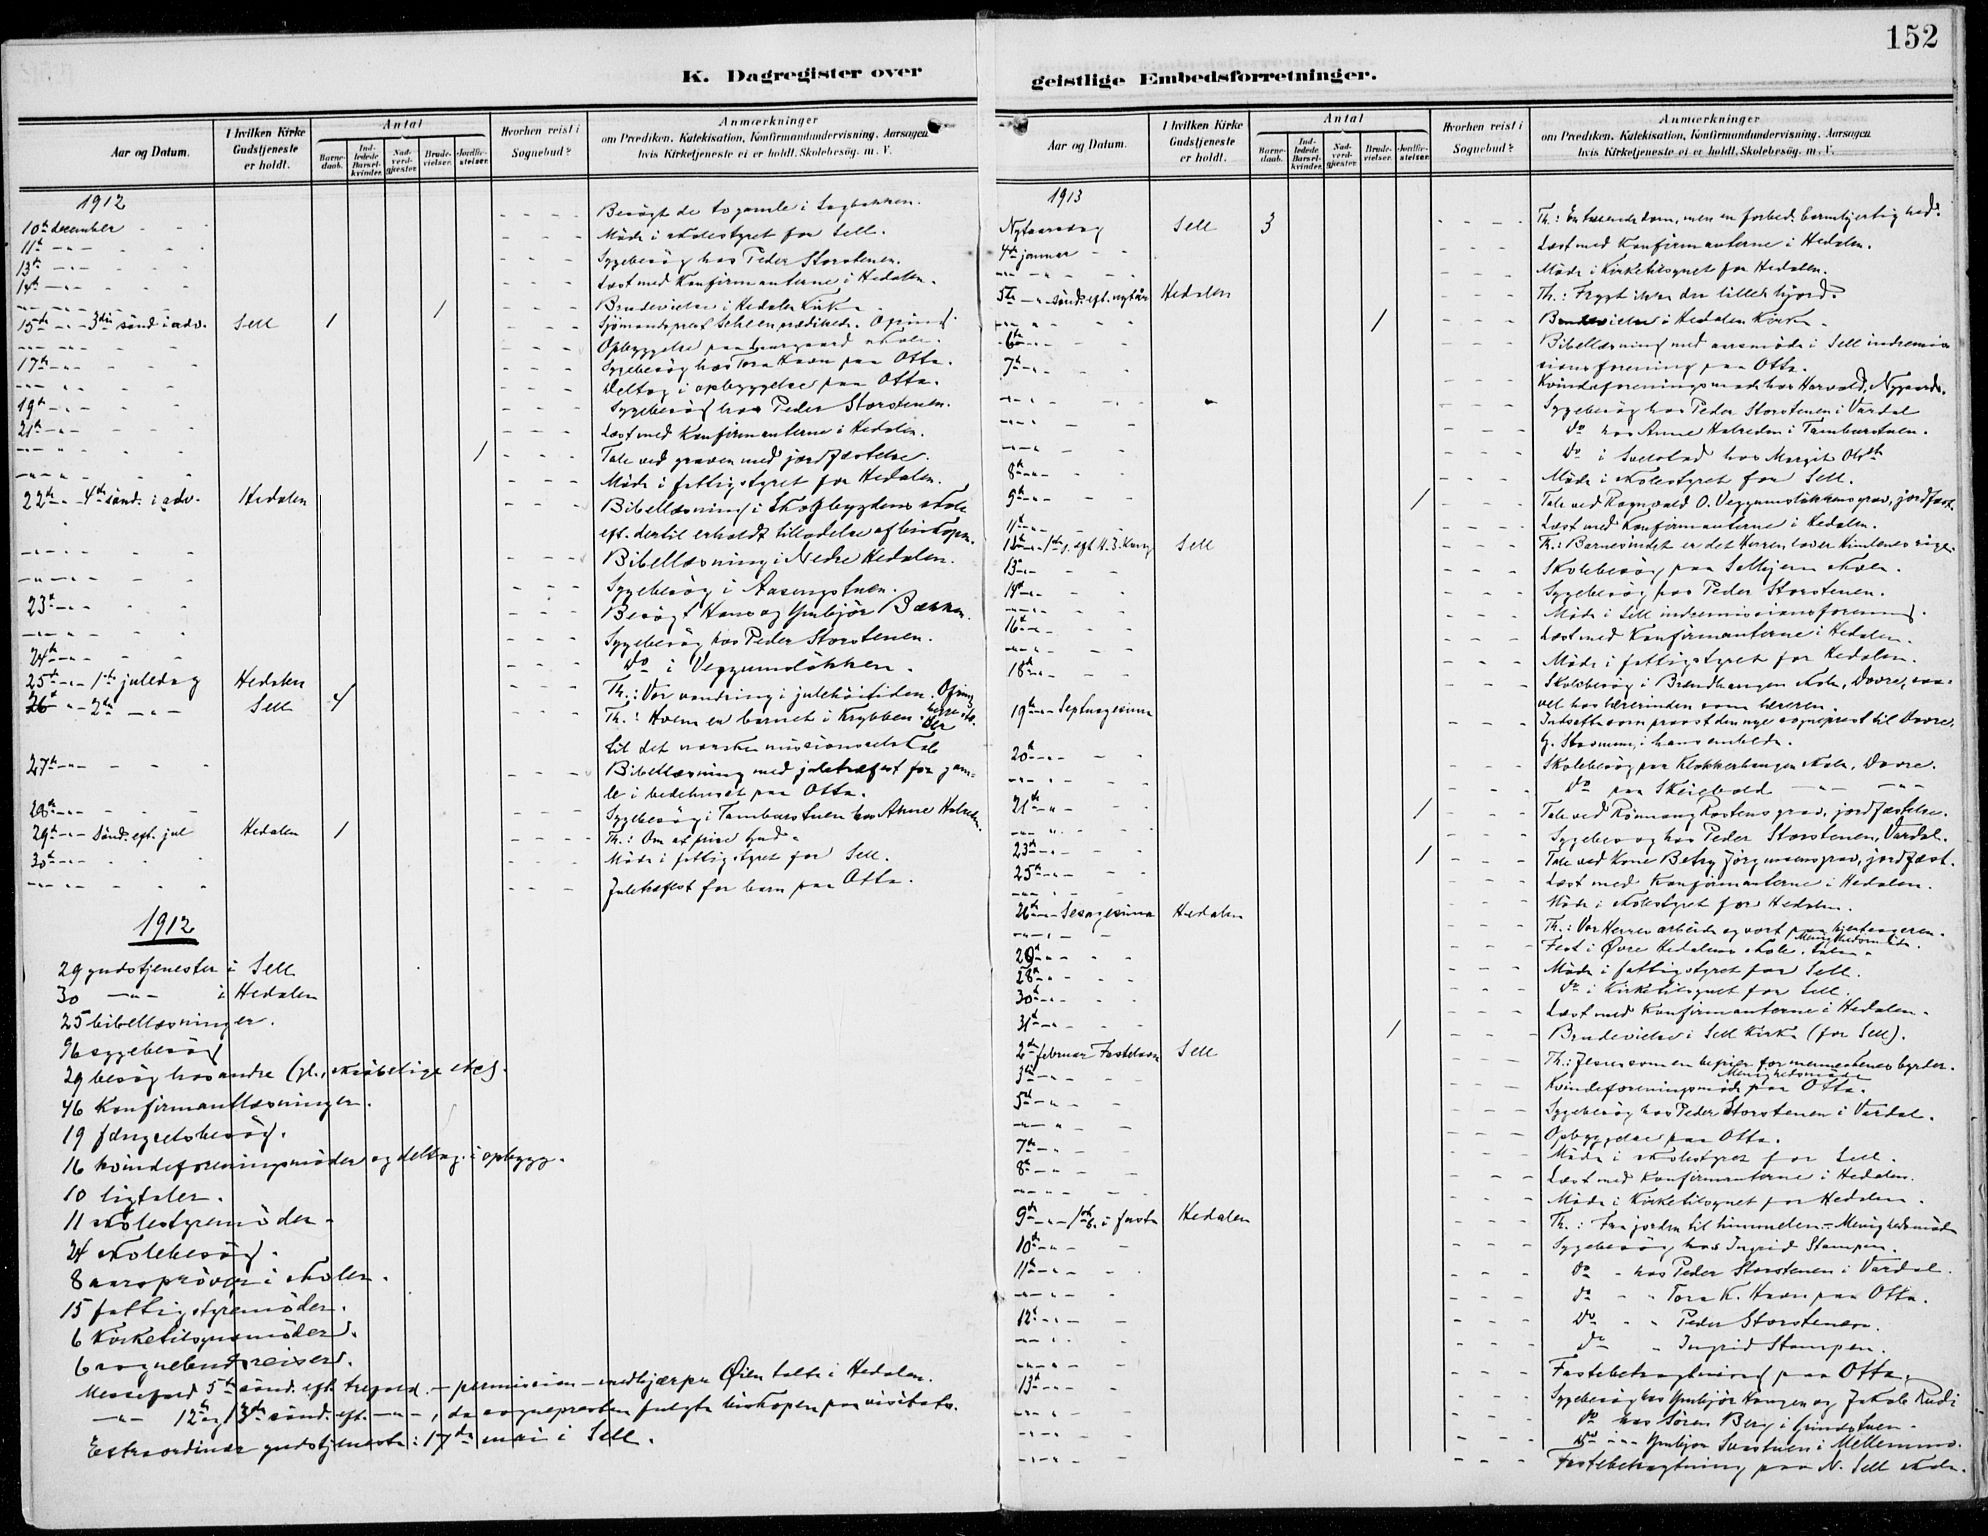 152
K. Dagregister over
geistlige Embedsforretninger.
Aar og Datum.
I hvilken Kirke Gudstjeneste er holdt.
Antal
Barnedaab.
Indledede Barselkvinder.
Nadverdgjæster.
Brudevielser.
Jordfæstelser.
Hvorhen reist i Sognebud?
Anmærkninger
om Prædiken, Katekisation, Konfirmandundervisning, Aarsagen,
hvis Kirketjeneste ei er holdt. Skolebesög. m. V.
1912
10de december - Besögt de to gamle i
11te - Möde i skolestyret for Sell.
13de - Sygebesög hos Peder Storstenen.
14de - Læst med konfirmanterne i Hedalen.
1 Brudevielse i Hedalen Kirke.
15de - 3die sönd. i adv. Sell 1 Sjömandsprest prædikede. Ofring.
Opbyggelse paa skole.
17de - Sygebesög hos Tora Havn paa Otta.
Deltog i opbyggelse paa Otta.
19de - Sygebesög hos Peder Storstenen.
21de - Læst med konfirmanterne i Hedalen.
1 Tale ved graven med jordfæstelse.
Möde i fattigstyret for Hedalen.
22de - 4de sönd. i adv. Hedalen Bibellæsning i skole
eft. dertil erholdt tilladelse af biskopen.
Bibellæsning i Nedre Hedalen.
Sygebesög i
23de - Besögt Hans og Ynbjör Bakken.
Sygebesög hos Peder Storstenen.
24de - do i Veggumsløkken.
25de - 1ste juledag Hedalen Th.: Vor vandring i julehöitiden. Ofring
26de - 2den - Sell 4 Th.: Hvem er barnet i krybben.
til det norske missionsselskab
27de - Bibellæsning med juletræfest for gam-
le i bedehuset paa Otta.
28de - Sygebesög i Tamburstuen hos Anne
29de - Sönd. eft. jul Hedalen 1 Th.: Om at prise Gud.
30te - Möde i fattigstyret for Sell.
Juletræfest for barn paa Otta.
1912
29 gudstjenester i Sell
30 -"- i Hedalen
25 bibellæsninger.
96 sygebesög
29 besög hos andre (gl., skröbelige etc).
46 konfirmantlæsninger.
19 fængselsbesög.
16 kvindeforeningsmöder og deltag. i opbygg.
10 ligtaler.
11 skolestyremöder.
24 skolebesög.
8 aarspröver i skolen.
15 fattigstyremöder.
6 kirketilsynsmöder.
6 sognebudsreiser.
Messefald 5te sönd. eft. trefold. - permission - medhjælper Øien talte i Hedalen.
-"- 12te og 13de sönd. eft. -"-, da sognepresten fulgte biskopen paa visitats.
Extraordinær gudstjeneste: 17de mai i Sell.
Aar og Datum.
I hvilken Kirke Gudstjeneste er holdt.
Antal
Barnedaab.
Indledede Barselkvinder.
Nadverdgjæster.
Brudevielser.
Jordfæstelser.
Hvorhen reist i Sognebud?
Anmærkninger
om Prædiken, Katekisation, Konfirmandundervisning, Aarsagen
hvis Kirketjeneste ei er holdt, Skolebesög. m. V.
1913
Nytaarsdag Sell 3 Th.: En dom, men en forbed. barmhjertighed.
4de januar Læst med konfirmanterne i Hedalen.
Möde i kirketilsynet for Hedalen.
5te - sönd. eft. nytår Hedalen Th.: Frygt ikke du lille hjord.
1 Brudevielse i Hedalen Kirke.
6te - Bibellæsning med aarsmöde i Sell indremis-
sionsforening paa Otta.
7de - Kvindeforeningsmöde hos Harvald Nygaard.
Sygebesög hos Peder Storstenen i Vardal
do hos Anne i Tamburstuen.
do i hos Margit
8de - Möde i skolestyret for Sell.
9de - 1 Tale ved Ragnvald O. Veggumsløkkens grav, jordfæst.
11te - Læst med konfirmanterne i Hedalen.
12te - 1ste s. eft. H. 3 Kong. Sell Th.: Barnesindet er det Herren lover Himlenes rige.
13de - Skolebesög paa skole.
14de - Sygebesög hos Peder Storstenen.
Möde i Sell indremissionsforening.
16de - Læst med konfirmanterne i Hedalen.
Möde i fattigstyret for Hedalen.
18de - Skolebesög i Brændhaugen skole, Dovre, saa-
vel hos lærerinden som læreren.
19de - Septuagesima Indsatte som provst den nye sogneprest til Dovre,
i hans embede.
20de - Skolebesög paa Klokkerhaugen skole, Dovre.
do paa
21de - 1 Tale ved Rönnaug grav, jordfæstelse.
Sygebesög hos Peder Storstenen, Vardal.
23de - 1 Tale ved Kone Betsy Jörgensens grav, jordfæst.
25de - Læst med konfirmanterne i Hedalen.
Möde i skolestyret for Hedalen.
26de - Sexagesima Hedalen Th.: Vor Herres arbeide og vort paa
Fest i Øvre Hedalens skole.
Möde i fattigstyret for Sell.
28de - do i kirketilsynet for Sell.
30te - Læst med konfirmanterne i Hedalen.
31te - 1 Brudevielse i Sell Kirke (for Sell).
2den februar Fastelavn Sell Th.: Jesus som en befrier for menneskenes byrder.
Menighedsmöde
3die - Kvindeforeningsmöde paa Otta.
5te - Sygebesög hos Peder Storstenen i Vardal.
Opbyggelse paa Otta.
7de - Möde i skolestyret for Sell.
8de - Læst med konfirmanterne i Hedalen.
Möde i kirketilsynet for Hedalen.
9de - 1ste s. i faste Hedalen Th.: Fra jorden til himmelen. - Menighedsmöde
10de - Sygebesög hos Ingrid Stampen.
11te - do - hos Peder Storstenen i Vardal.
do " " Tora K. Havn paa Otta.
12te - do " " Peder Storstenen.
do " Ingrid Stampen.
Fastebetragtning paa Otta.
13de - Sygebesög hos Ynbjör Haugen og Jakob Rudi
do hos Sören Berg i Grindstuen.
do -"- Ynbjör i
Fastebetragtning paa N. Sell skole.